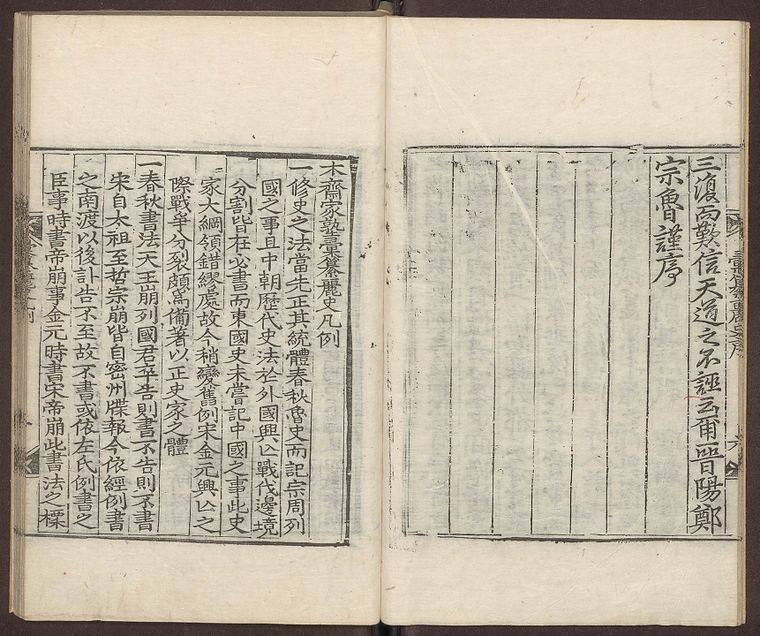 三復而歎信天道之不誣云爾晉陽鄭
宗魯謹序
木齋家塾彙纂麗史凡例
一修史之法當先正其統體春秋魯史而記宗周列
國之事且中朝歷代史法於外國興亾戰伐邊境
分割皆在必書而東國史未嘗記中國之事此史
家大綱領錯繆處故今稍變舊例宋金元興亾之
際戰爭分裂頗爲備著以正史家之體
一春秋書法天王崩列國君卒告則書不告則不書
宋自太祖至哲宗崩皆自密州牒報今依經例書
之南渡以後訃告不至故不書或依左氏例書之
臣事時書帝崩事金元時書宋帝崩此書法之槩